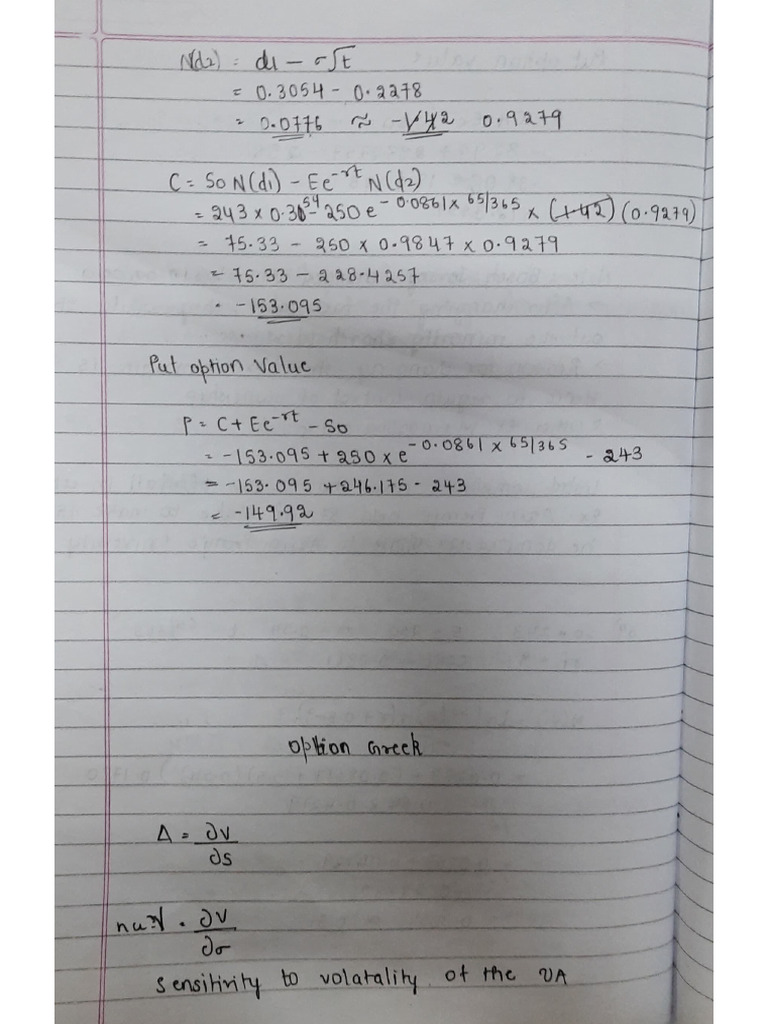 N(d2) = d1 - σ√t
= 0.3054 - 0.2278
= 0.0776 ≈ -1.42 0.9279
C = S0 N(d1) - Ee^-rt N(d2)
= 243 x 0.3054 - 250 e^-0.0861 x 65/365 x (1.42) (0.9279)
= 75.33 - 250 x 0.9847 x 0.9279
= 75.33 - 228.4257
. -153.095
Put option value
P = C + Ee^-rt - S0
= -153.095 + 250 x e^-0.0861 x 65/365 - 243
= -153.095 + 246.175 - 243
= -149.92
Option Greek
Δ = ∂v/∂s
= ∂v/∂σ
sensitivity to volatality of the UA